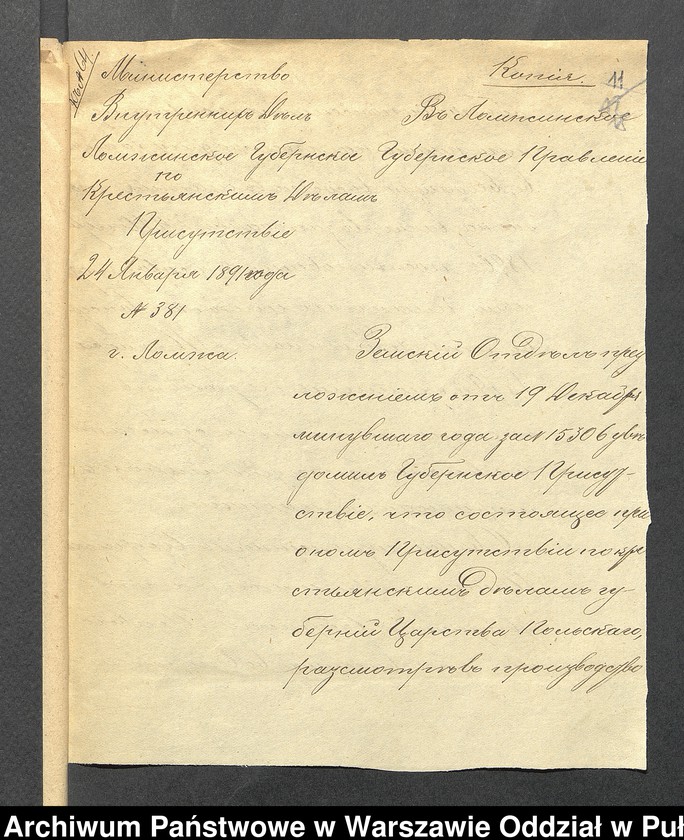 Копія.
11
Министерство
Внутреннихъ Дѣлъ
Въ Ломжинское
Ломжинское Губернское
Губернское Правленіе
по
Крестьянскимъ Дѣламъ
Присутствіе
24 Января 1891 года
№ 381
г. Ломжа.
Земскій Отдѣлъ пред
ложеніемъ отъ 19 Декабря
минувшаго года за № 15306 увѣ
домилъ Губернское Присут-
ствіе, что состоящее при
ономъ Присутствіи по кре
стьянскимъ дѣламъ гу-
берній Царства Польскаго,
разсмотрѣвъ производство
Archiwum Państwowe w Warszawie Oddział w Puł